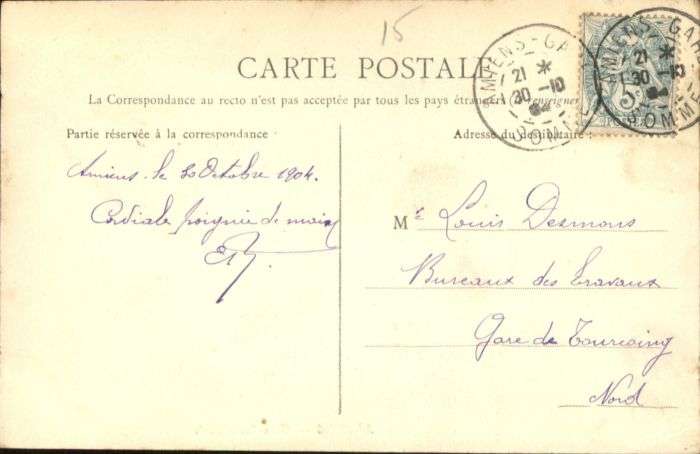 15
CARTE POSTALE
La Correspondance au recto n'est pas acceptée par tous les pays étrangers
Partie réservée à la correspondance :
Adresse du destinataire :
AMIENS-GARE
21 *
30 -10
04
SOMME
AMIENS-GARE
21 *
30 -10
04
SOMME
5c
Amiens. le 30 Octobre 1904.
Cordiale poignée de main
M.r Louis Desmons
Bureaux des Travaux
Gare de Tourcoing
Nord